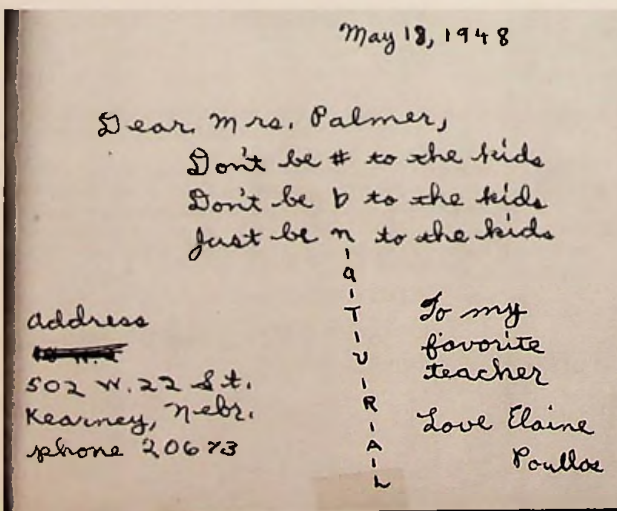 May 18, 1948
Dear Mrs. Palmer,
Don't be # to the kids
Don't be b to the kids
Just be n to the kids
-a-T-U-R-A-L
address
502 W. 22 St.
Kearney, Nebr.
phone 20673
To my
favorite
teacher
Love Elaine
Poullos